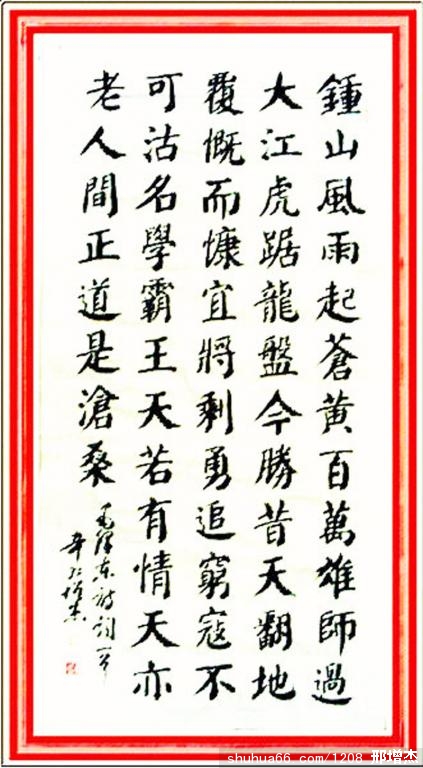 鍾山風雨起蒼黃百萬雄師過
大江虎踞龍盤今勝昔天翻地
覆慨而慷宜將剩勇追窮寇不
可沽名學霸王天若有情天亦
老人間正道是滄桑
毛澤東詩詞一首
增杰
shuhua66.com/1208 邢增杰